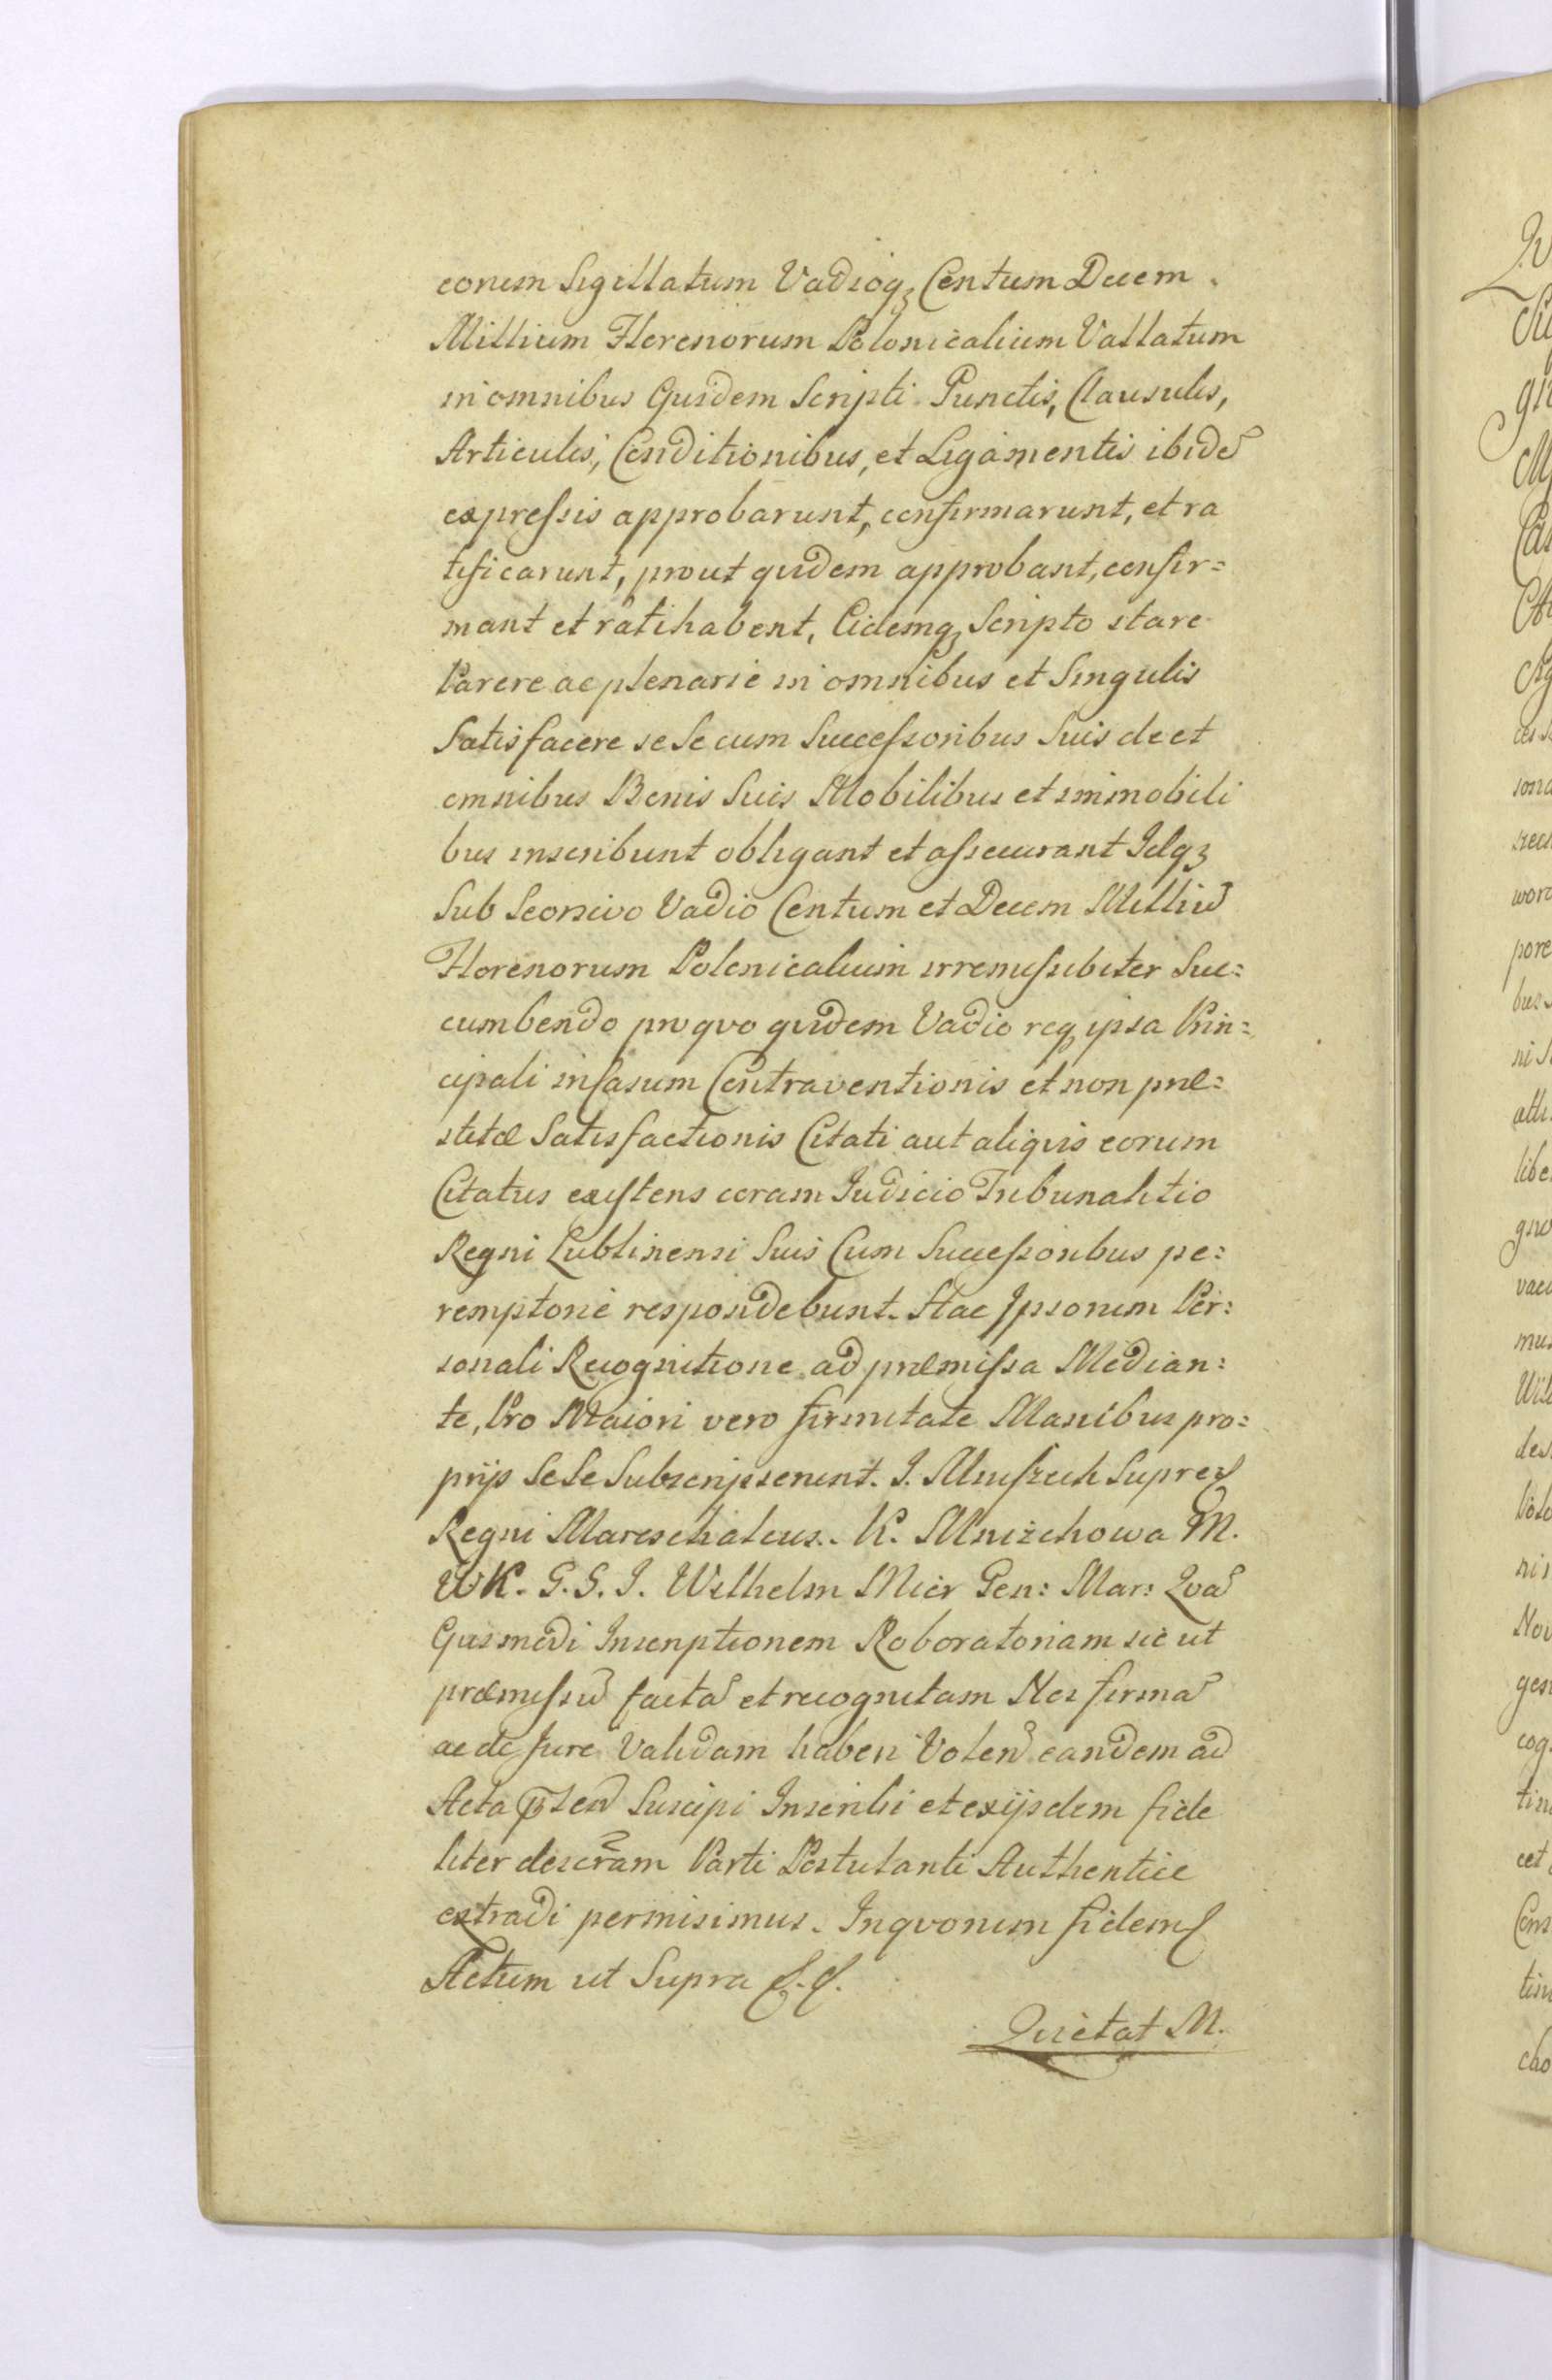 eorum Sigillatum Vadioq; Centum Decem
Millium Florenorum Polonicalium Vallatum
in omnibus Ejusdem Scripti Punctis, Clausulis,
Articulis, Conditionibus, et Ligamentis ibidẽ
expressis approbarunt, confirmarunt, et ra
tificarunt, prout quidem approbant, confir=
mant et ratihabent, Eidemq; Scripto stare
Parere ac plenarie in omnibus et Singulis
Satisfacere se Se cum Successoribus Suis de et
omnibus Bonis Suis Mobilibus et immobili
bus inscribunt obligant et assecurant Idq;
Sub Seorsivo Vadio Centum et Decem Milliũ
Florenorum Polonicalium irremissibiter Suc=
cumbendo pro quo quidem Vadio req; ipsa Prin=
cipali in Casum Contraventionis et non præ=
stitæ Satisfactionis Citati aut aliquis eorum
Citatus existens coram Judicio Tribunalitio
Regni Lublinensi Suis Cum Successoribus pe=
remptorie respondebunt. Hac Ipsorum Per=
sonali Recognitione ad præmissa Median=
te, Pro Maiori vero firmitate Manibus pro=
prijs Se Se Subscripserunt. J. Mniszech Supre
Regni Mareschalcus. K. Mniżchowa M.
WK. G. S. J. Wilhelm Mier Gen: Mar: Quã
Ejusmodi Inscriptionem Roboratoriam sic ut
præmissũ factã et recognitam Nos firmã
ac de Jure Validam haberi Volen̄ eandem ad
Acta pñten̄ Suscipi Inscribi et ex ijsdem fide
liter descr̃am Parti Postulanti Authentice
extradi permisimus. In quorum fidem
Actum ut Supra
Quietat M.